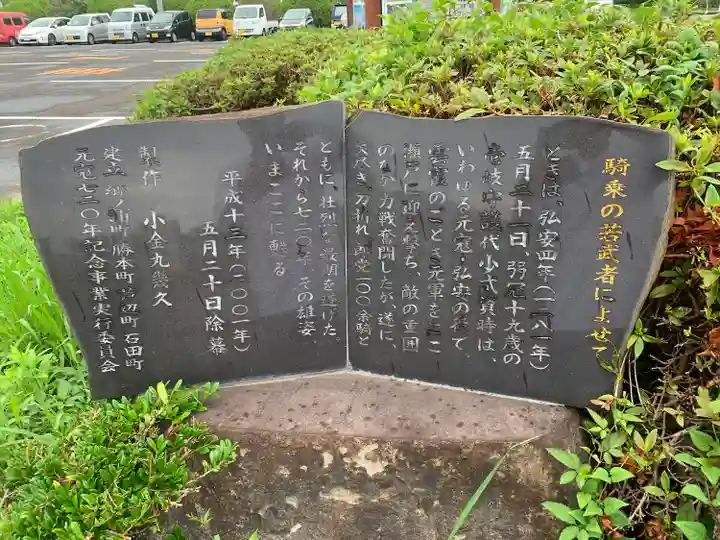 騎乗の若武者によせて
ときは、弘安四年(一二八一年)
五月二十一日、弱冠十九歳の
壱岐守護代少弐資時は、
いわゆる元寇・弘安の役で、
雲霞のごとき元軍をここ
瀬戸に迎え撃ち、敵の重囲
のなか力戦奮闘したが、遂に
矢尽き、刀折れ、郎党一〇〇余騎と
ともに、壮烈な最期を遂げた。
それから七二〇年、その雄姿、
いまここに甦る
平成十三年(二〇〇一年)
五月二十日除幕
製作 小金丸幾久
建立 郷ノ浦町 勝本町 芦辺町 石田町
元寇七二〇年記念事業実行委員会